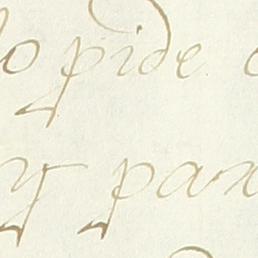 lo pide
y para